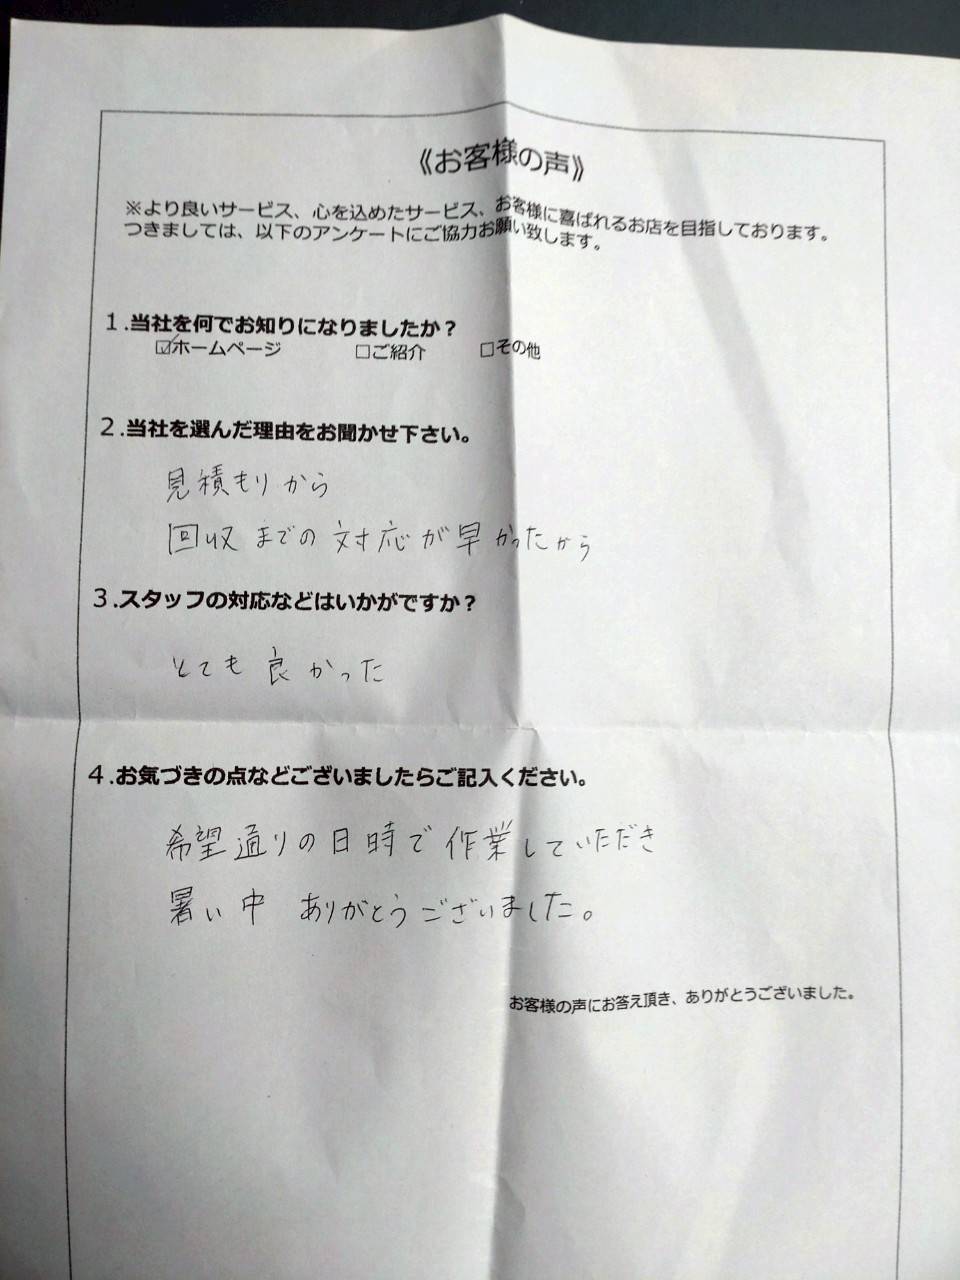 《お客様の声》
※より良いサービス、心を込めたサービス、お客様に喜ばれるお店を目指しております。
つきましては、以下のアンケートにご協力お願い致します。
１.当社を何でお知りになりましたか？
☑ホームページ □ご紹介 □その他
２.当社を選んだ理由をお聞かせ下さい。
見積もりから
回収までの対応が早かったから
３.スタッフの対応などはいかがですか？
とても良かった
４.お気づきの点などございましたらご記入ください。
希望通りの日時で作業していただき
暑い中 ありがとうございました。
お客様の声にお答え頂き、ありがとうございました。